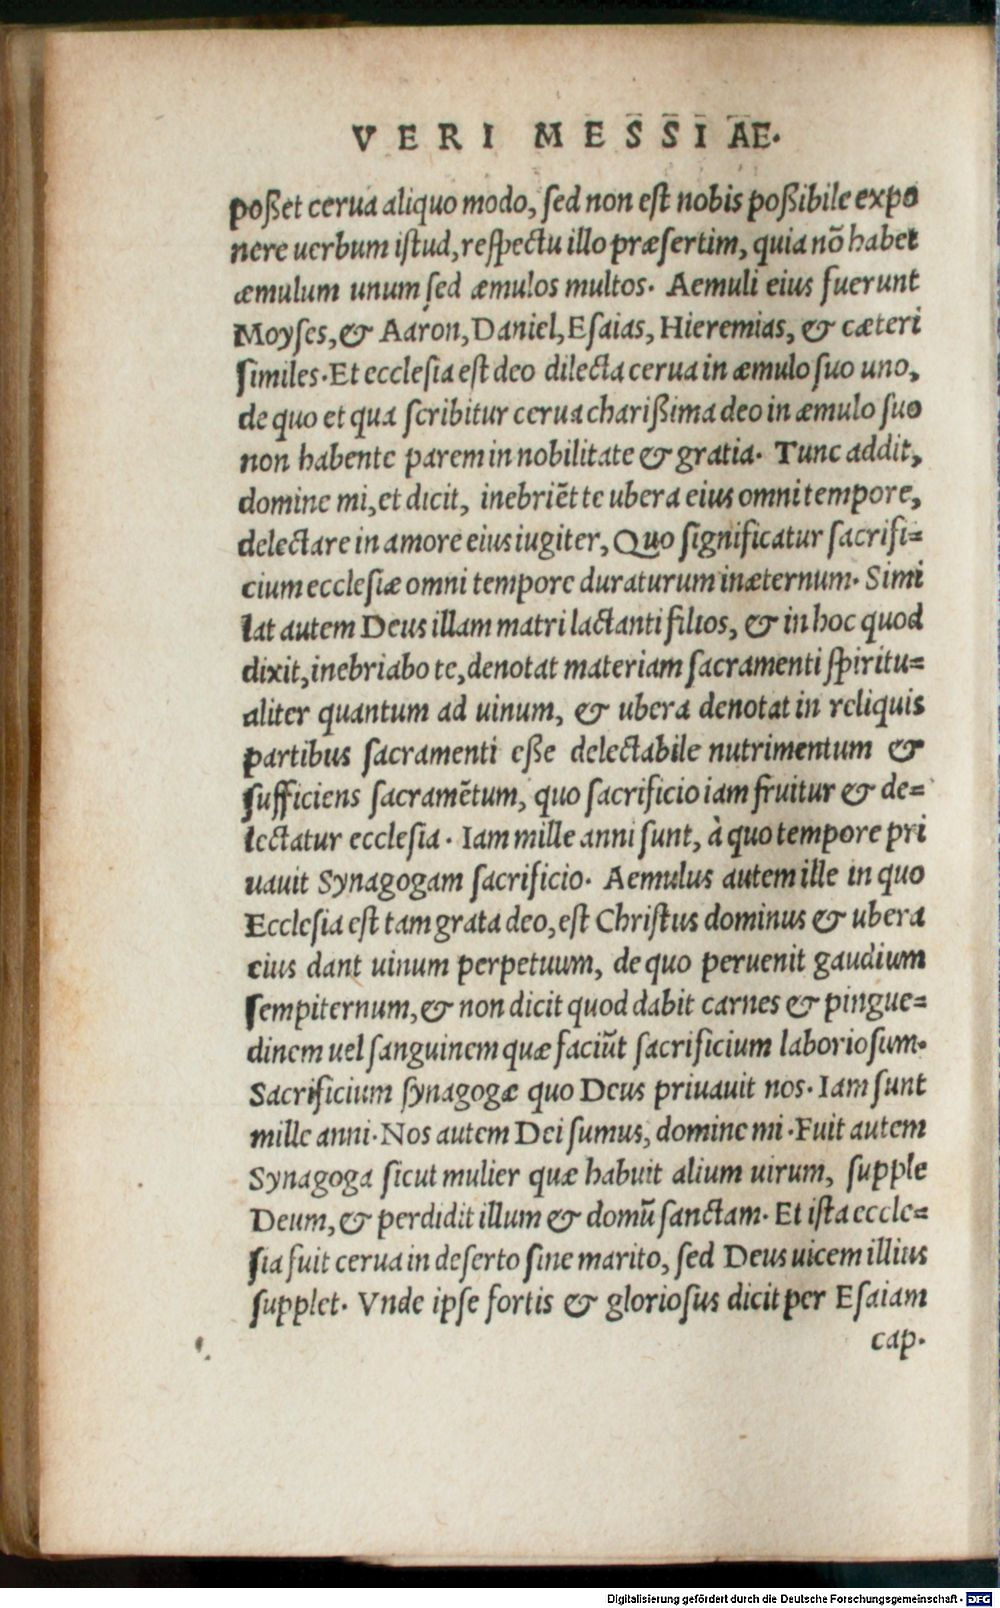 VERI MESSIAE.
poßet cerua aliquo modo, sed non est nobis poßibile expo
nere uerbum istud, respectu illo præsertim, quia nõ habet
æmulum unum sed æmulos multos. Aemuli eius fuerunt
Moyses, & Aaron, Daniel, Esaias, Hieremias, & cæteri
similes. Et ecclesia est deo dilecta cerua in æmulo suo uno,
de quo et qua scribitur cerua charißima deo in æmulo suo
non habente parem in nobilitate & gratia. Tunc addit,
domine mi, et dicit, inebriẽt te ubera eius omni tempore,
delectare in amore eius iugiter, Quo significatur sacrifi=
cium ecclesiæ omni tempore duraturum inæternum. Simi
lat autem Deus illam matri lactanti filios, & in hoc quod
dixit, inebriabo te, denotat materiam sacramenti spiritu=
aliter quantum ad uinum, & ubera denotat in reliquis
partibus sacramenti eße delectabile nutrimentum &
sufficiens sacramẽtum, quo sacrificio iam fruitur & de=
lectatur ecclesia. Iam mille anni sunt, à quo tempore pri
uauit Synagogam sacrificio. Aemulus autem ille in quo
Ecclesia est tam grata deo, est Christus dominus & ubera
eius dant uinum perpetuum, de quo peruenit gaudium
sempiternum, & non dicit quod dabit carnes & pingue=
dinem uel sanguinem quæ faciũt sacrificium laboriosum.
Sacrificium synagogæ quo Deus priuauit nos. Iam sunt
mille anni. Nos autem Dei sumus, domine mi. Fuit autem
Synagoga sicut mulier quæ habuit alium uirum, supple
Deum, & perdidit illum & domũ sanctam. Et ista eccle=
sia fuit cerua in deserto sine marito, sed Deus uicem illius
supplet. Vnde ipse fortis & gloriosus dicit per Esaiam
cap.
Digitalisierung gefördert durch die Deutsche Forschungsgemeinschaft - DFG